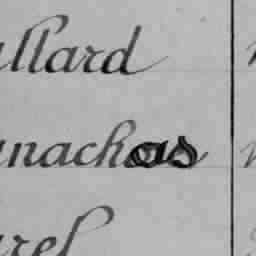 llard
anachas
rel